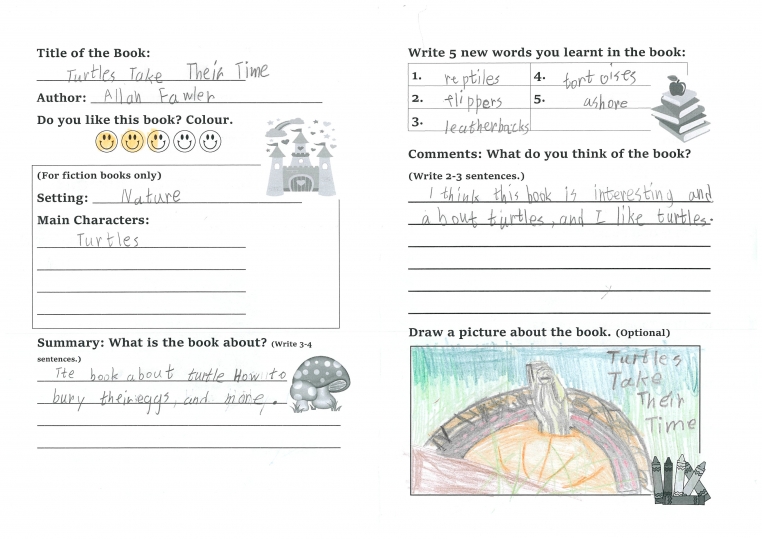 Title of the Book:
Turtles Take Their Time
Author: Allan Fawler
Do you like this book? Colour.
(For fiction books only)
Setting: Nature
Main Characters:
Turtles
Summary: What is the book about? (Write 3-4
sentences.)
The book about turtle How to
bury their eggs, and more,.
Write 5 new words you learnt in the book:
1. reptiles
2. flippers
3. leatherbacks
4. tortoises
5. ashore
Comments: What do you think of the book?
(Write 2-3 sentences.)
I think this book is interesting and
about turtles, and I like turtles.
Draw a picture about the book. (Optional)
Turtles
Take
Their
Time